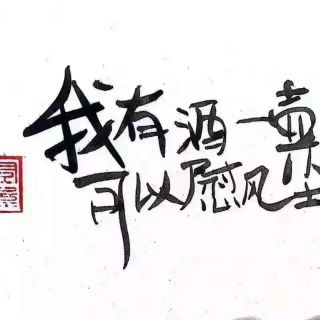 我有酒一壶
可以慰风尘